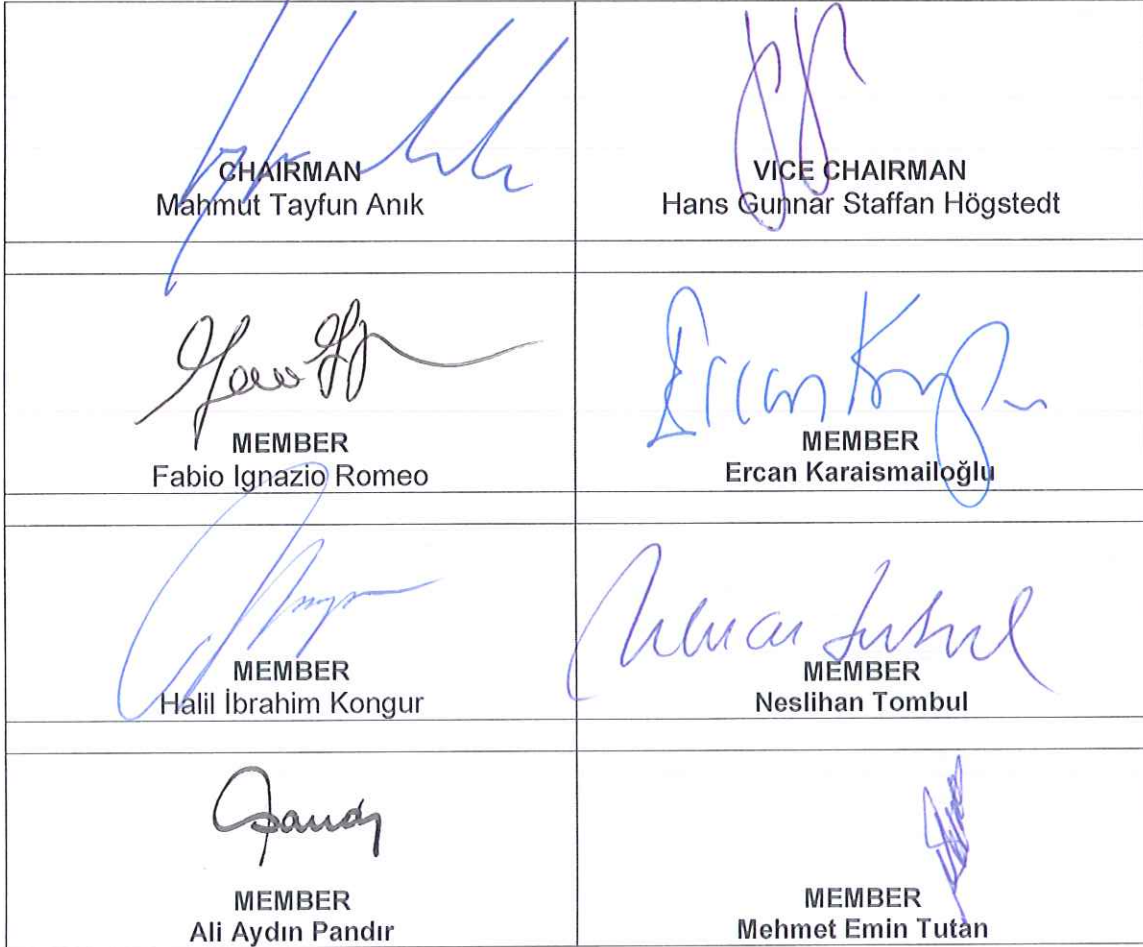 CHAIRMAN
Mahmut Tayfun Anık
VICE CHAIRMAN
Hans Gunnar Staffan Högstedt
MEMBER
Fabio Ignazio Romeo
Ercan K
MEMBER
Ercan Karaismailoğlu
MEMBER
Halil İbrahim Kongur
MEMBER
Neslihan Tombul
MEMBER
Ali Aydın Pandır
MEMBER
Mehmet Emin Tutan